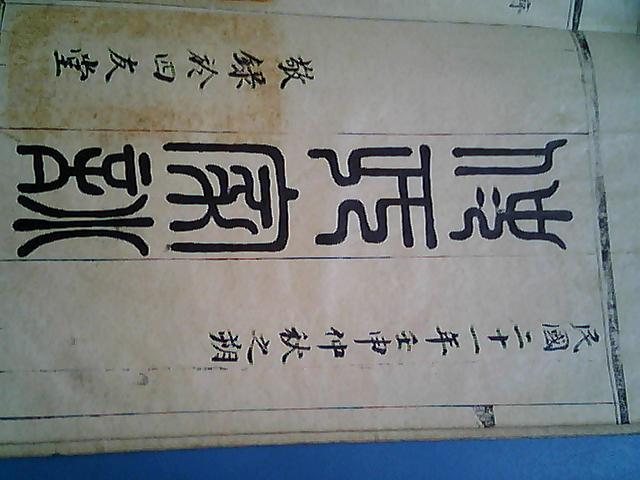 民國二十一年壬申仲秋之朔
家訓
敬錄於四友堂